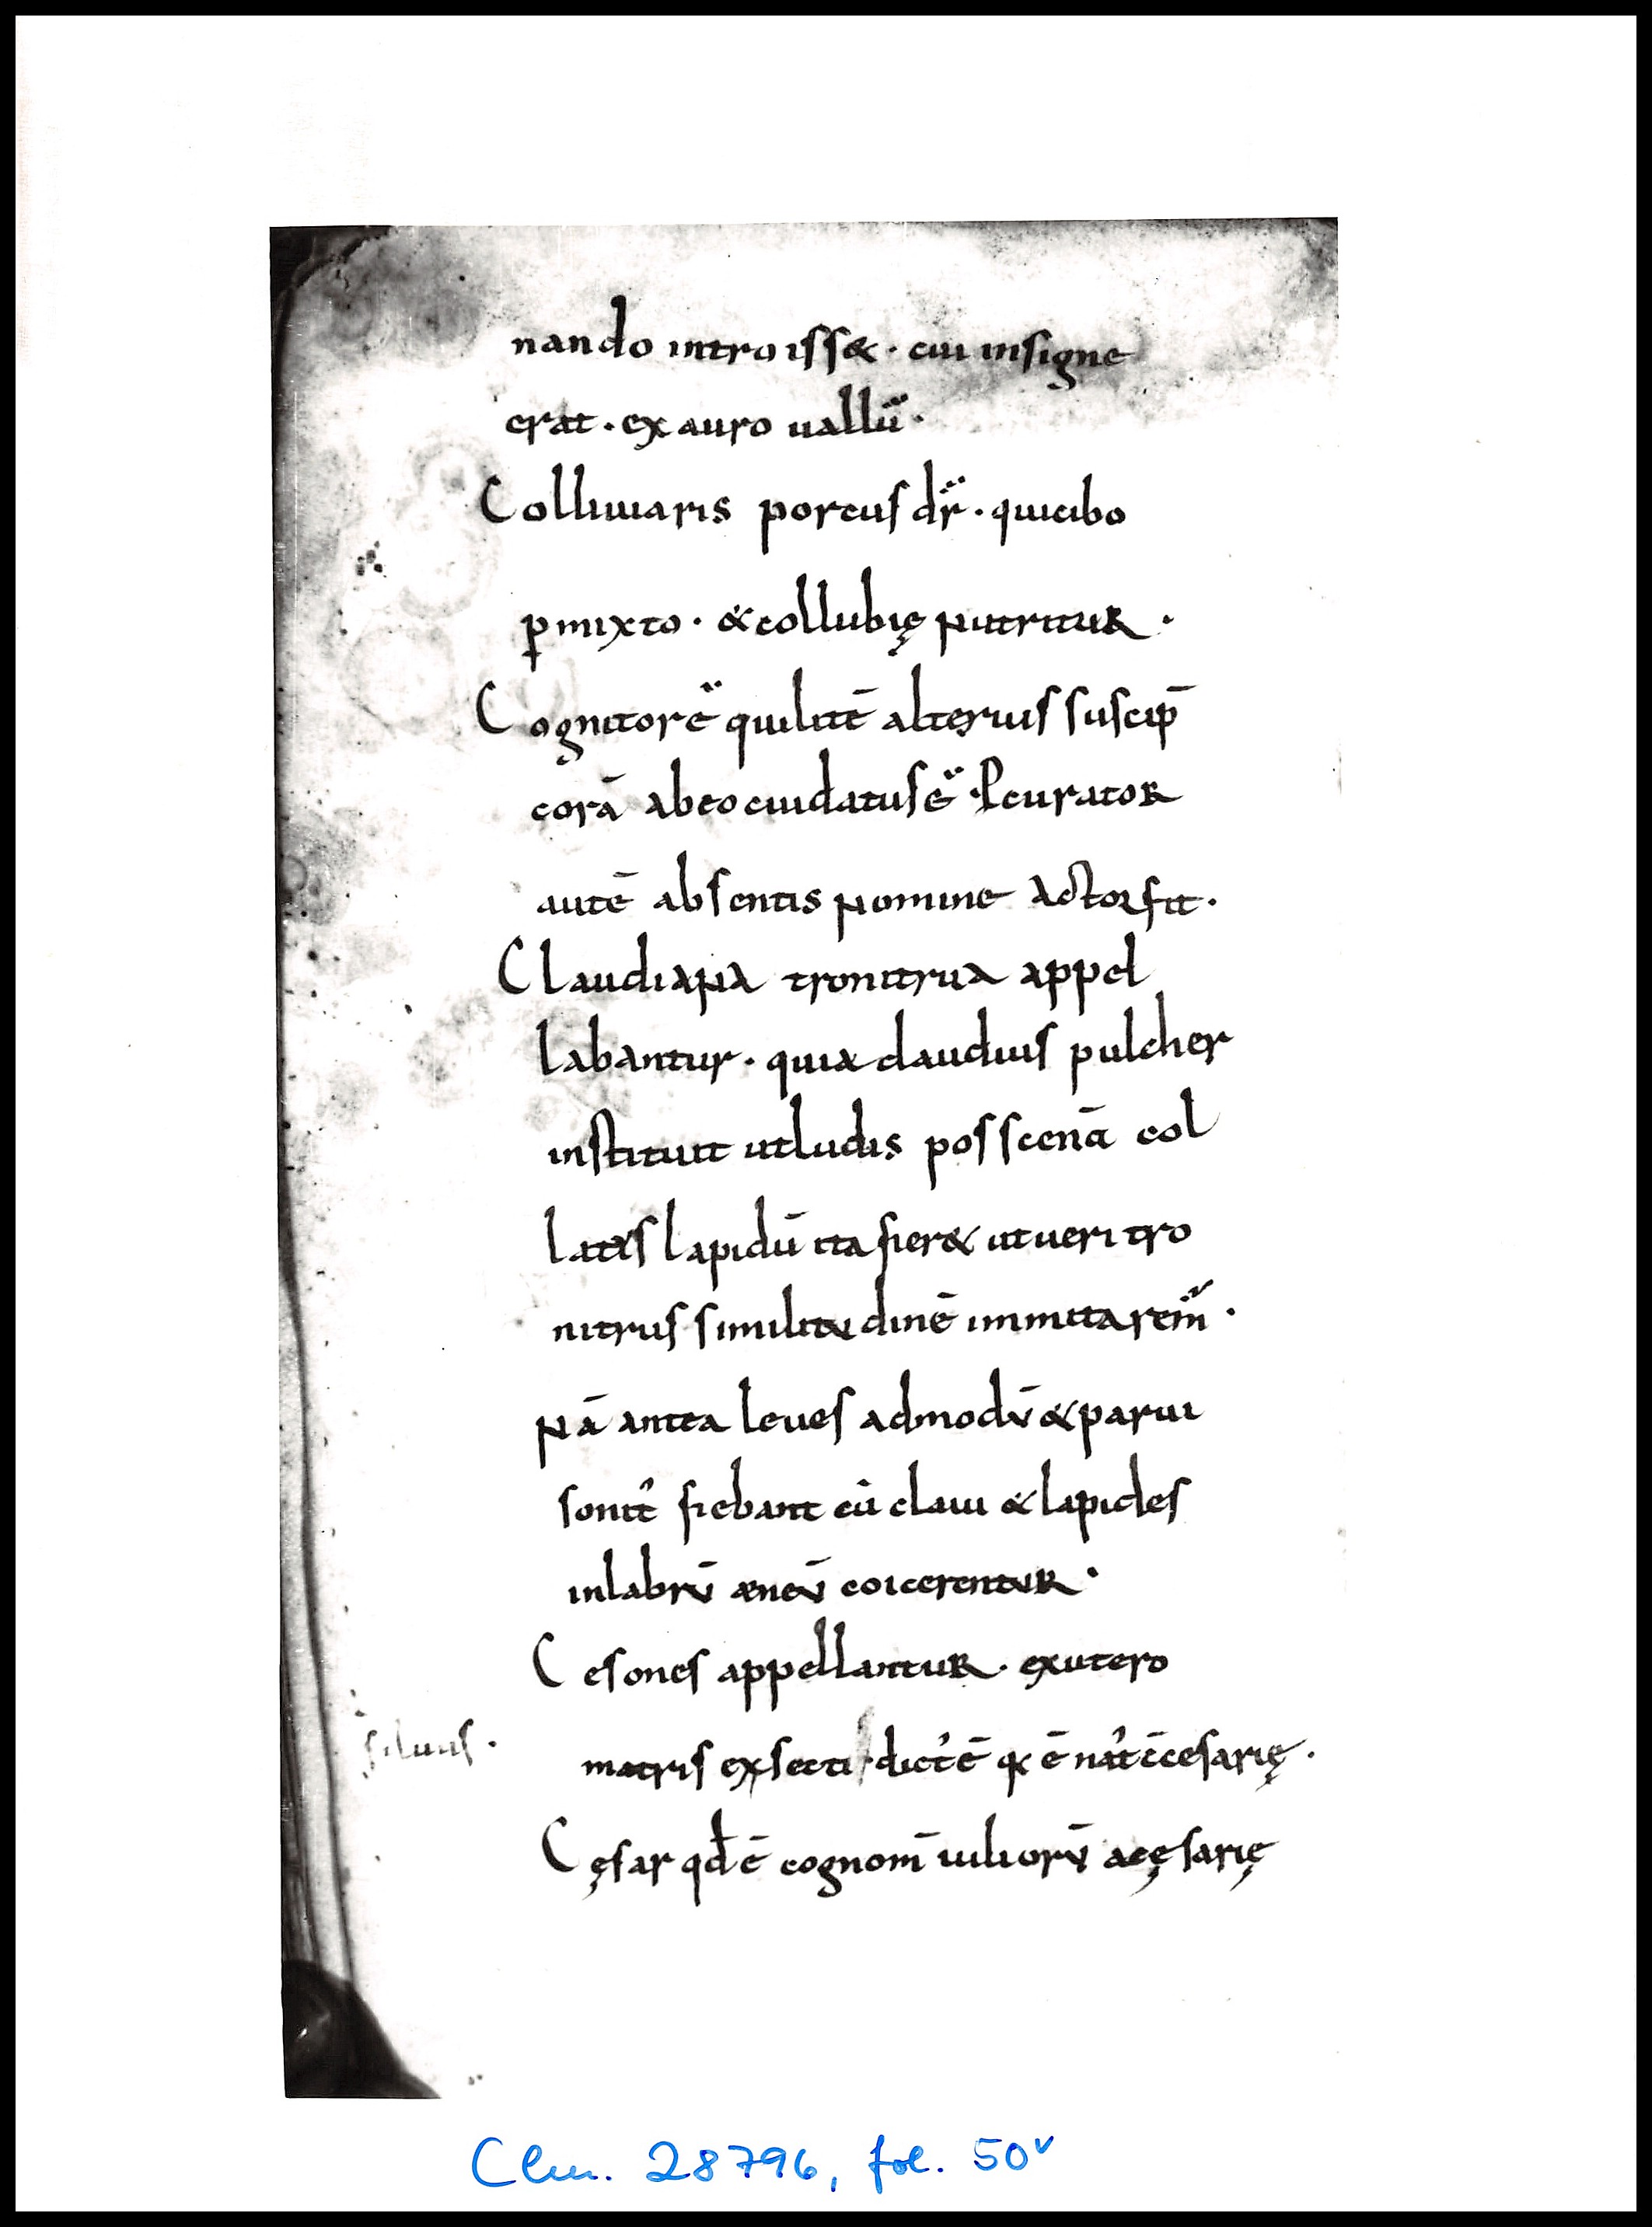 nando introiss&. cui insigne
erat. ex auro uallū.
Colluuiaris porcus dr̄. qui cibo
ꝑmixto. & collubię nutritur.
Cognitor ē quilitē alterius suscip̄
corā ab eo cui datus ē. Ꝓcurator
autē absentis nomine actor fit.
Claudiana tronitrua appel
labantur. quia claudius pulcher
instituit ut ludis pos scenā col
latis lapidū ita fier& ut ueri tro
nitrus similitudinē immitarem̄.
nā antea leues admodū & parui
sonit᾿ fiebant cū claui & lapides
in labrū æneū coicerentur.
Cesones appellantur. ex utero
siluius.
matris exsecti dict᾿ ē q& ē nat᾿ ē cesarię.
Cęsar qđ ē cognom̄ iuliorū a cęsarię
Clm. 28796, fol. 50v